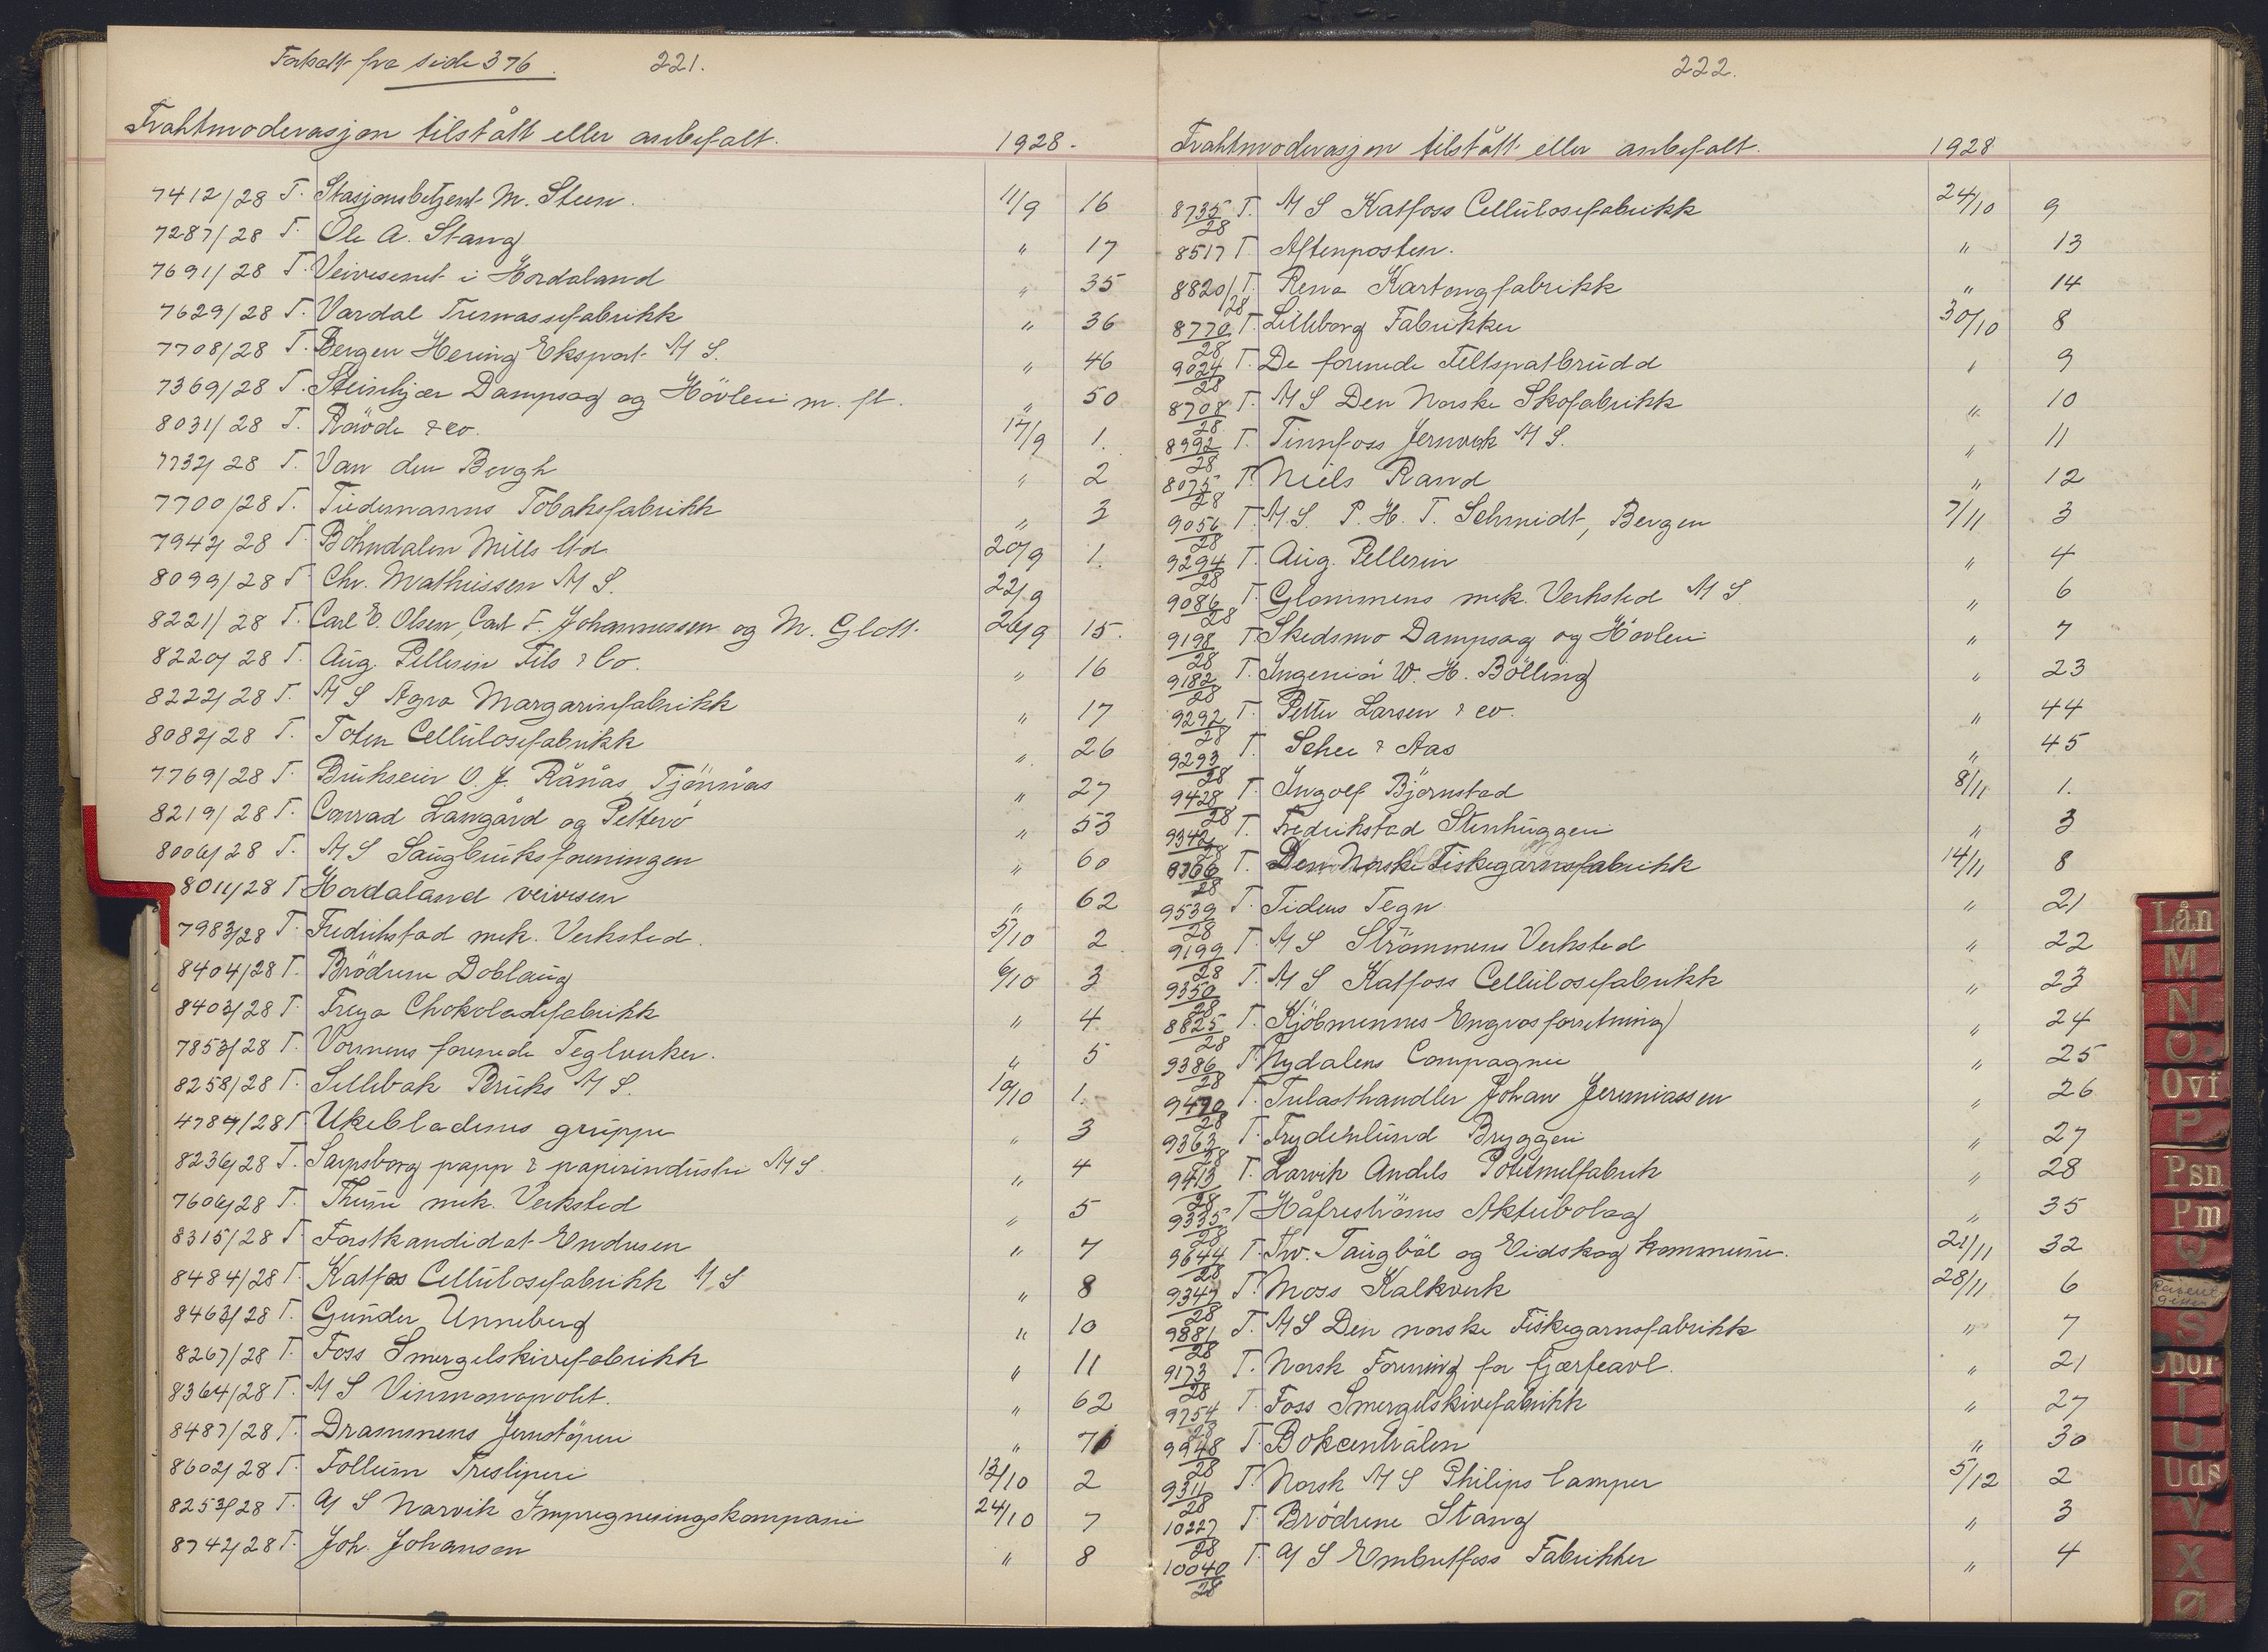 Forts. fra side 376. 221.
Fraktmoderasjon tilstått eller anbefalt. 1928.
7412/28 T. Stasjonsbetjent M. Steen. 11/9 16
7287/28 T. Ole A. Stang " 17
7691/28 T. Veivesenet i Hordaland " 35
7629/28 T. Vardal Tremassefabrikk " 36
7708/28 T. Bergen Hering Eksport A/S. " 46
7369/28 T. Steinkjær Dampsag og Hövleri m. fl. " 50
8031/28 T. Rövde & co. 17/9 1.
7732/28 T. Van den Bergh " 2
7700/28 T. Tiedemanns Tobaksfabrikk " 3
7942/28 T. Böhndalen Mills Ltd. 20/9 1.
8099/28 T. Chr. Mathiessen A/S. 22/9
8221/28 T. Carl E. Olsen, Carl F. Johannessen og M. Glott 26/9 15.
8220/28 T. Aug. Pellerin Fils & Co. " 16
8222/28 T. A/S Agra Margarinfabrikk " 17
8082/28 T. Toten Cellulosefabrikk " 26
7769/28 T. Brukseier O. J. Rånås, Tjönnås " 27
8219/28 T. Conrad Langård og Petterö " 53
8006/28 T. A/S Saugbruksforeningen " 60
8011/28 T Hordaland veivesen " 62
7983/28 T. Fredrikstad mek. Verksted. 5/10 2
8404/28 T. Brödrene Doblaug 6/10 3
8403/28 T. Freya Chokoladefabrikk " 4
7853/28 T. Vormens forenede Teglverker. " 5
8258/28 T. Sellebak Bruks A/S. 10/10 1.
4784/28 T. Ukebladenes gruppe " 3
8236/28 T. Sarpsborg papp & papirindustri A/S. " 4
7606/28 T. Thune mek. Verksted " 5
8315/28 T Forstkandidat Endresen " 7
8484/28 T. Katfos Cellulosefabrikk A/S " 8
8463/28 T. Gunder Unneberg " 10
8267/28 T. Foss Smergelskivefabrikk " 11
8364/28 T. A/S Vinmonopolet. " 62
8487/28 T. Drammens Jernstöperi " 71
8602/28 T. Follum Tresliperi 13/10 2
8253/28 T. A/S Narvik Impregneringskompani 24/10 7
8742/28 T. Joh. Johansen " 8
222.
Fraktmoderasjon tilstått eller anbefalt. 1928
8735/28 T. A/S Katfoss Cellulosefabrikk 24/10 9
8517 T Aftenposten. " 13
8820/28 T. Rena Kartongfabrikk " 14
8770/28 T. Lilleborg Fabrikker 30/10 8
9024/28 T. De forenede Feltspatbrudd " 9
8708/28 T. A/S Den Norske Skofabrikk " 10
8992/28 T. Tinnfoss Jernverk A/S. " 11
8075/28 T. Niels Rand " 12
9056/28 T. A/S. P. H. T. Schmidt, Bergen 7/11 3
9294/28 T. Aug. Pellerin " 4
9086/28 T. Glommens mek. Verksted A/S " 6
9198/28 T Skedsmo Dampsag og Hövleri " 7
9182/28 T. Ingeniör W. H. Bölling " 23
9292/28 T. Petter Larsen & co. " 44
9293/28 T. Schee & Aas " 45
9428/28 T. Ingolf Björnstad 8/11 1.
9342/28 T. Fredrikstad Stenhuggeri " 3
9366/28 T. Den Norske Fiskegarnsfabrikk 14/11 8
9539/28 T. Tidens Tegn " 21
9199/28 T A/S Strömmens Verksted " 22
9350/28 T. A/S Katfoss Cellulosefabrikk " 23
8825/28 T. Kjöbmennes Engrosforretning " 24
9386/28 T Nydalens Compagnie " 25
9490/28 T. Trelasthandler Johan Jeremiassen " 26
9363/28 T. Frydenlund Bryggeri " 27
9413/28 T. Larvik Andels Potetmelfabrik " 28
9335/28 T Håfreströms Aktiebolag " 35
9644/28 T. Hr. Taugböl og Eidskog kommune. 21/11 32
9347/28 T. Moss Kalkverk 28/11 6
9881/28 T. A/S Den norske Fiskegarnsfabrikk " 7
9173/28 T. Norsk Forening for fjærfeavl. " 21
9754/28 T. Foss Smergelskivefabrikk " 27
9948/28 T. Bokcentralen " 30
9311/28 T. Norsk A/S Philips lamper 5/12 2
10227/28 T. Brödrene Stang " 3
10040/28 T. A/S Embretfoss Fabrikker " 4
Lån
M
N
O
Ovi
P
Psn
Pm
Q
S
Spor
T
U
Uds
V
X
Ø